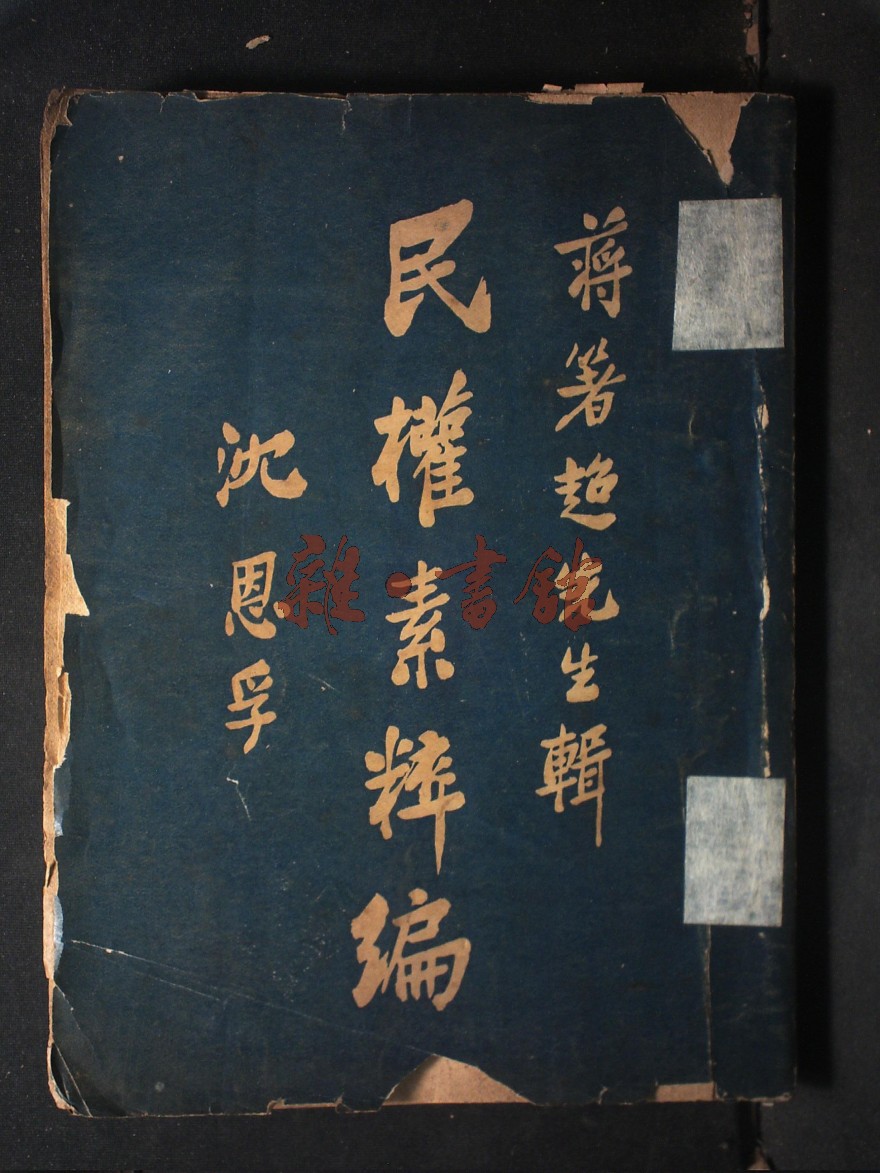 蒋箸超先生輯
民權素粹編
沈恩孚
雜·書館